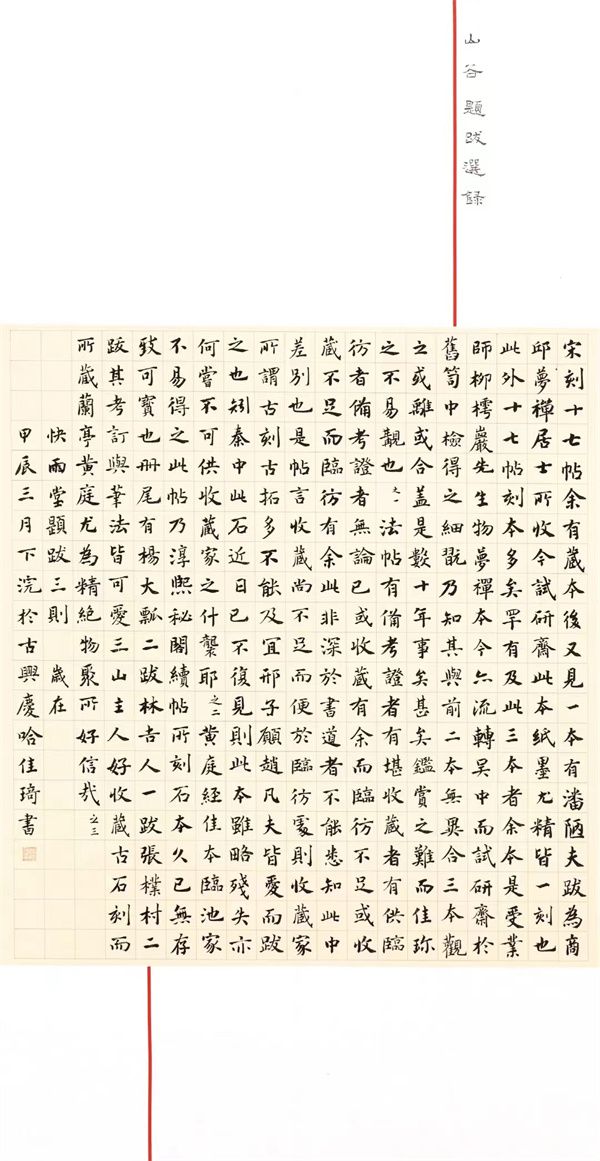 山谷題跋選録
宋刻十七帖余有藏本後又見一本有潘陋夫跋為商
邱夢禪居士所收今試研齋此本紙墨尤精皆一刻也
此外十七帖刻本多矣罕有及此三本者余本是受業
師柳樗巖先生物夢禪本今亦流轉吴中而試研齋於
舊笥中檢得之細翫乃知其與前二本無異合三本觀
之或離或合盖是數十年事矣甚矣鑑賞之難而佳珎
之不易覯也之一法帖有備考證者有堪收藏者有供臨
彷者備考證者無論已或收藏有余而臨彷不足或收
藏不足而臨彷有余此非深於書道者不能悉知此中
差別也是帖言收藏尚不足而便於臨彷處則收藏家
所謂古刻古拓多不能及宜邢子願趙凡夫皆愛而跋
之也矧秦中此石近日已不復見則此本雖略殘失亦
何嘗不可供收藏家之什襲耶之二黄庭經佳本臨池家
不易得之此帖乃淳熙秘閣續帖所刻石本久已無存
致可寶也册尾有楊大瓢二跋林吉人一跋張樸村二
跋其考訂與筆法皆可愛三山主人好收藏古石刻而
所藏蘭亭黄庭尤為精絶物聚所好信哉之三
快雨堂題跋三則 歲在
甲辰三月下浣於古興慶哈佳琦書